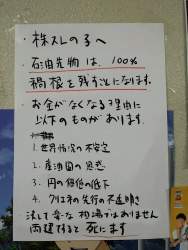 ・株スレの子へ
・石油先物は、100%
禍根を残すことになります。
・お金がなくなる理由に
以下のものがあります。
1. 世界情況の不安定
2. 産油国の思惑
3. 円の価値の低下
4. クリエネの先行の不透明
決して安な相場ではありません
両建すると死にます